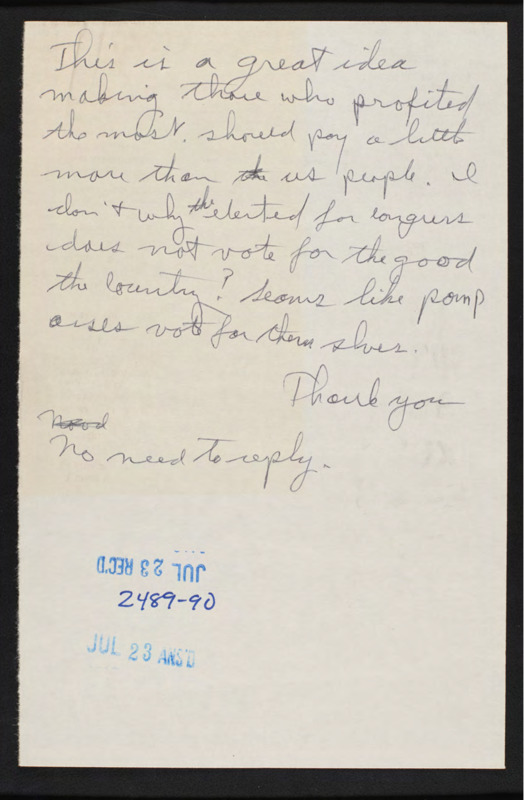 This is a great idea
making those who profited
the most. should pay a little
more than us people. I
don't why the elected for congress
does not vote for the good
the country? Seams like pomp
asses vote for them slves.
Thank you
No need to reply.
JUL 23 REC'D
2489-90
JUL 23 ANS'D